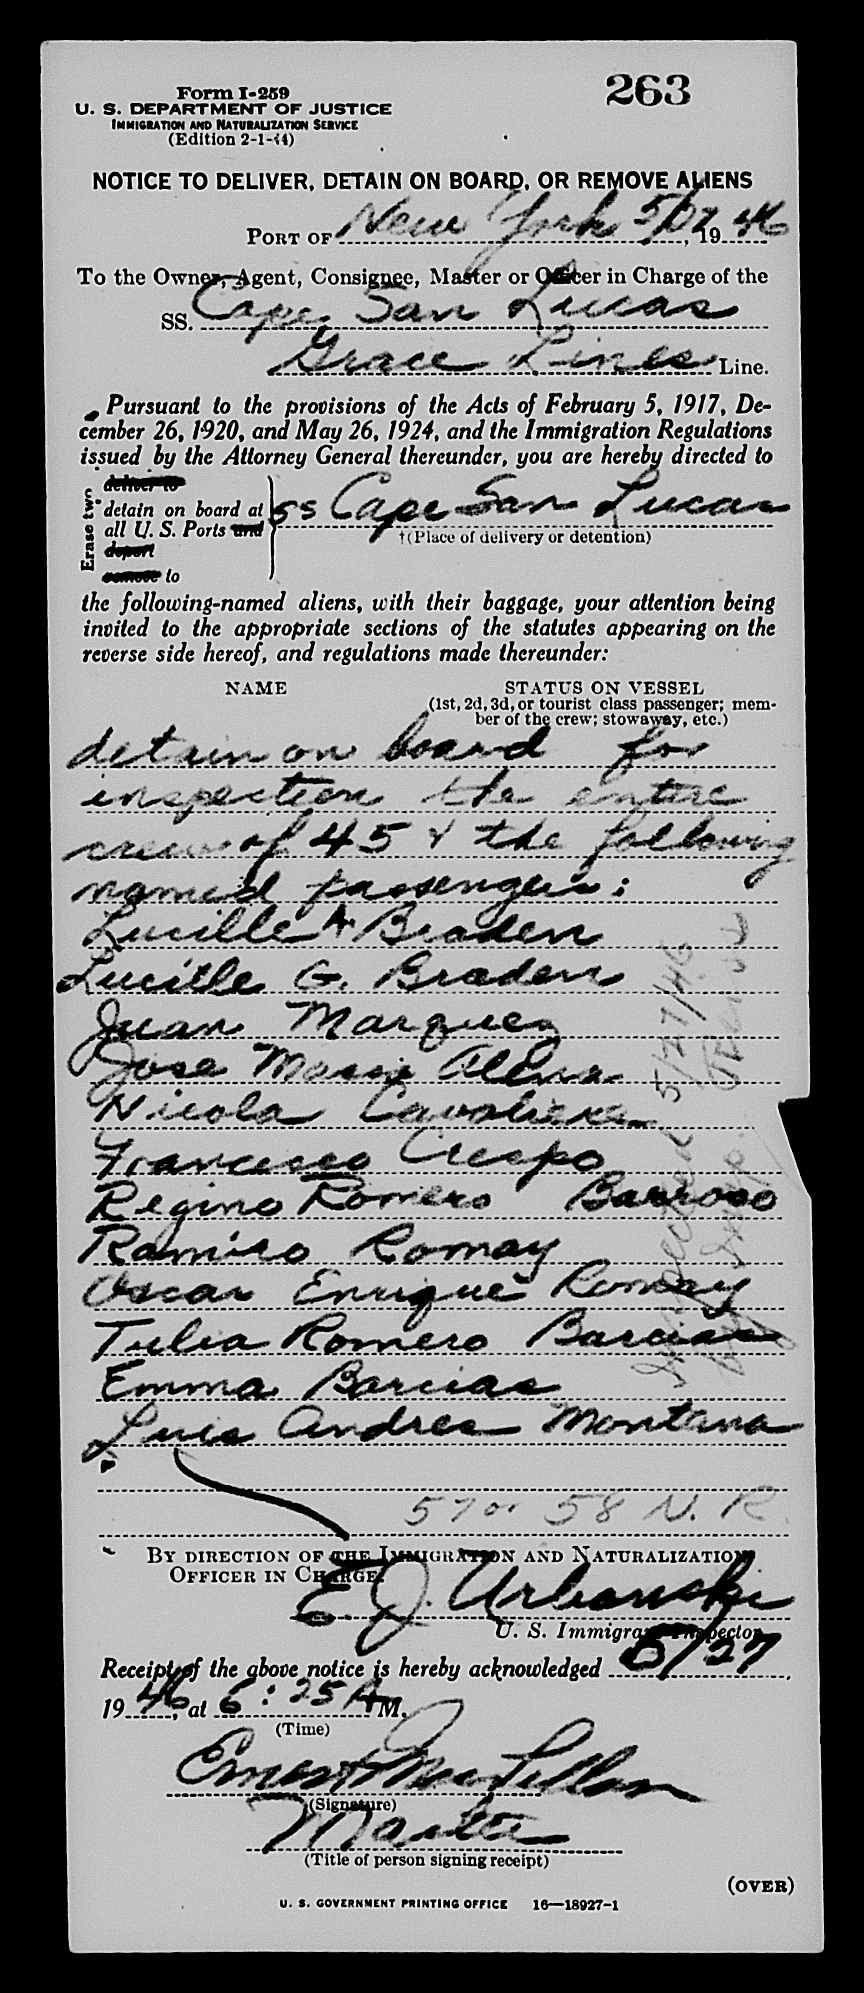 Form I-259
263
U. S. DEPARTMENT OF JUSTICE
IMMIGRATION AND NATURALIZATION SERVICE
(Edition 2-1-44)
NOTICE TO DELIVER, DETAIN ON BOARD, OR REMOVE ALIENS
PORT OF New York 5/27, 1946
To the Owner, Agent, Consignee, Master or Officer in Charge of the
SS. Cape San Lucas
Grace Lines Line.
Pursuant to the provisions of the Acts of February 5, 1917, De-
cember 26, 1920, and May 26, 1924, and the Immigration Regulations
issued by the Attorney General thereunder, you are hereby directed to
Erase two
deliver to
detain on board at
all U. S. Ports and
deport
remove to
SS Cape San Lucas
†(Place of delivery or detention)
the following-named aliens, with their baggage, your attention being
invited to the appropriate sections of the statutes appearing on the
reverse side hereof, and regulations made thereunder:
NAME STATUS ON VESSEL
(1st, 2d, 3d, or tourist class passenger; mem-
ber of the crew; stowaway, etc.)
detain on board for
inspection the entire
crew of 45 & the following
named passengers:
Lucille A Braden
Lucille G. Braden
Juan Marquez
Jose Maria
Nicola
Francisco Crespo
Regino Romero Barroso
Ramiro Romay
Oscar Enrique Romay
Tulia Romero Barcias
Emma Barcias
Luis Andres Montana
Inspected 5/27/46
57 or 58 N. R.
BY DIRECTION OF THE IMMIGRATION AND NATURALIZATION
OFFICER IN CHARGE.
E. J. Urbanski
U. S. Immigrant Inspector
Receipt of the above notice is hereby acknowledged 5/27,
1946, at 6:25 A M.
(Time)
Ernest
(Signature)
Master
(Title of person signing receipt)
(OVER)
U. S. GOVERNMENT PRINTING OFFICE 16—18927-1